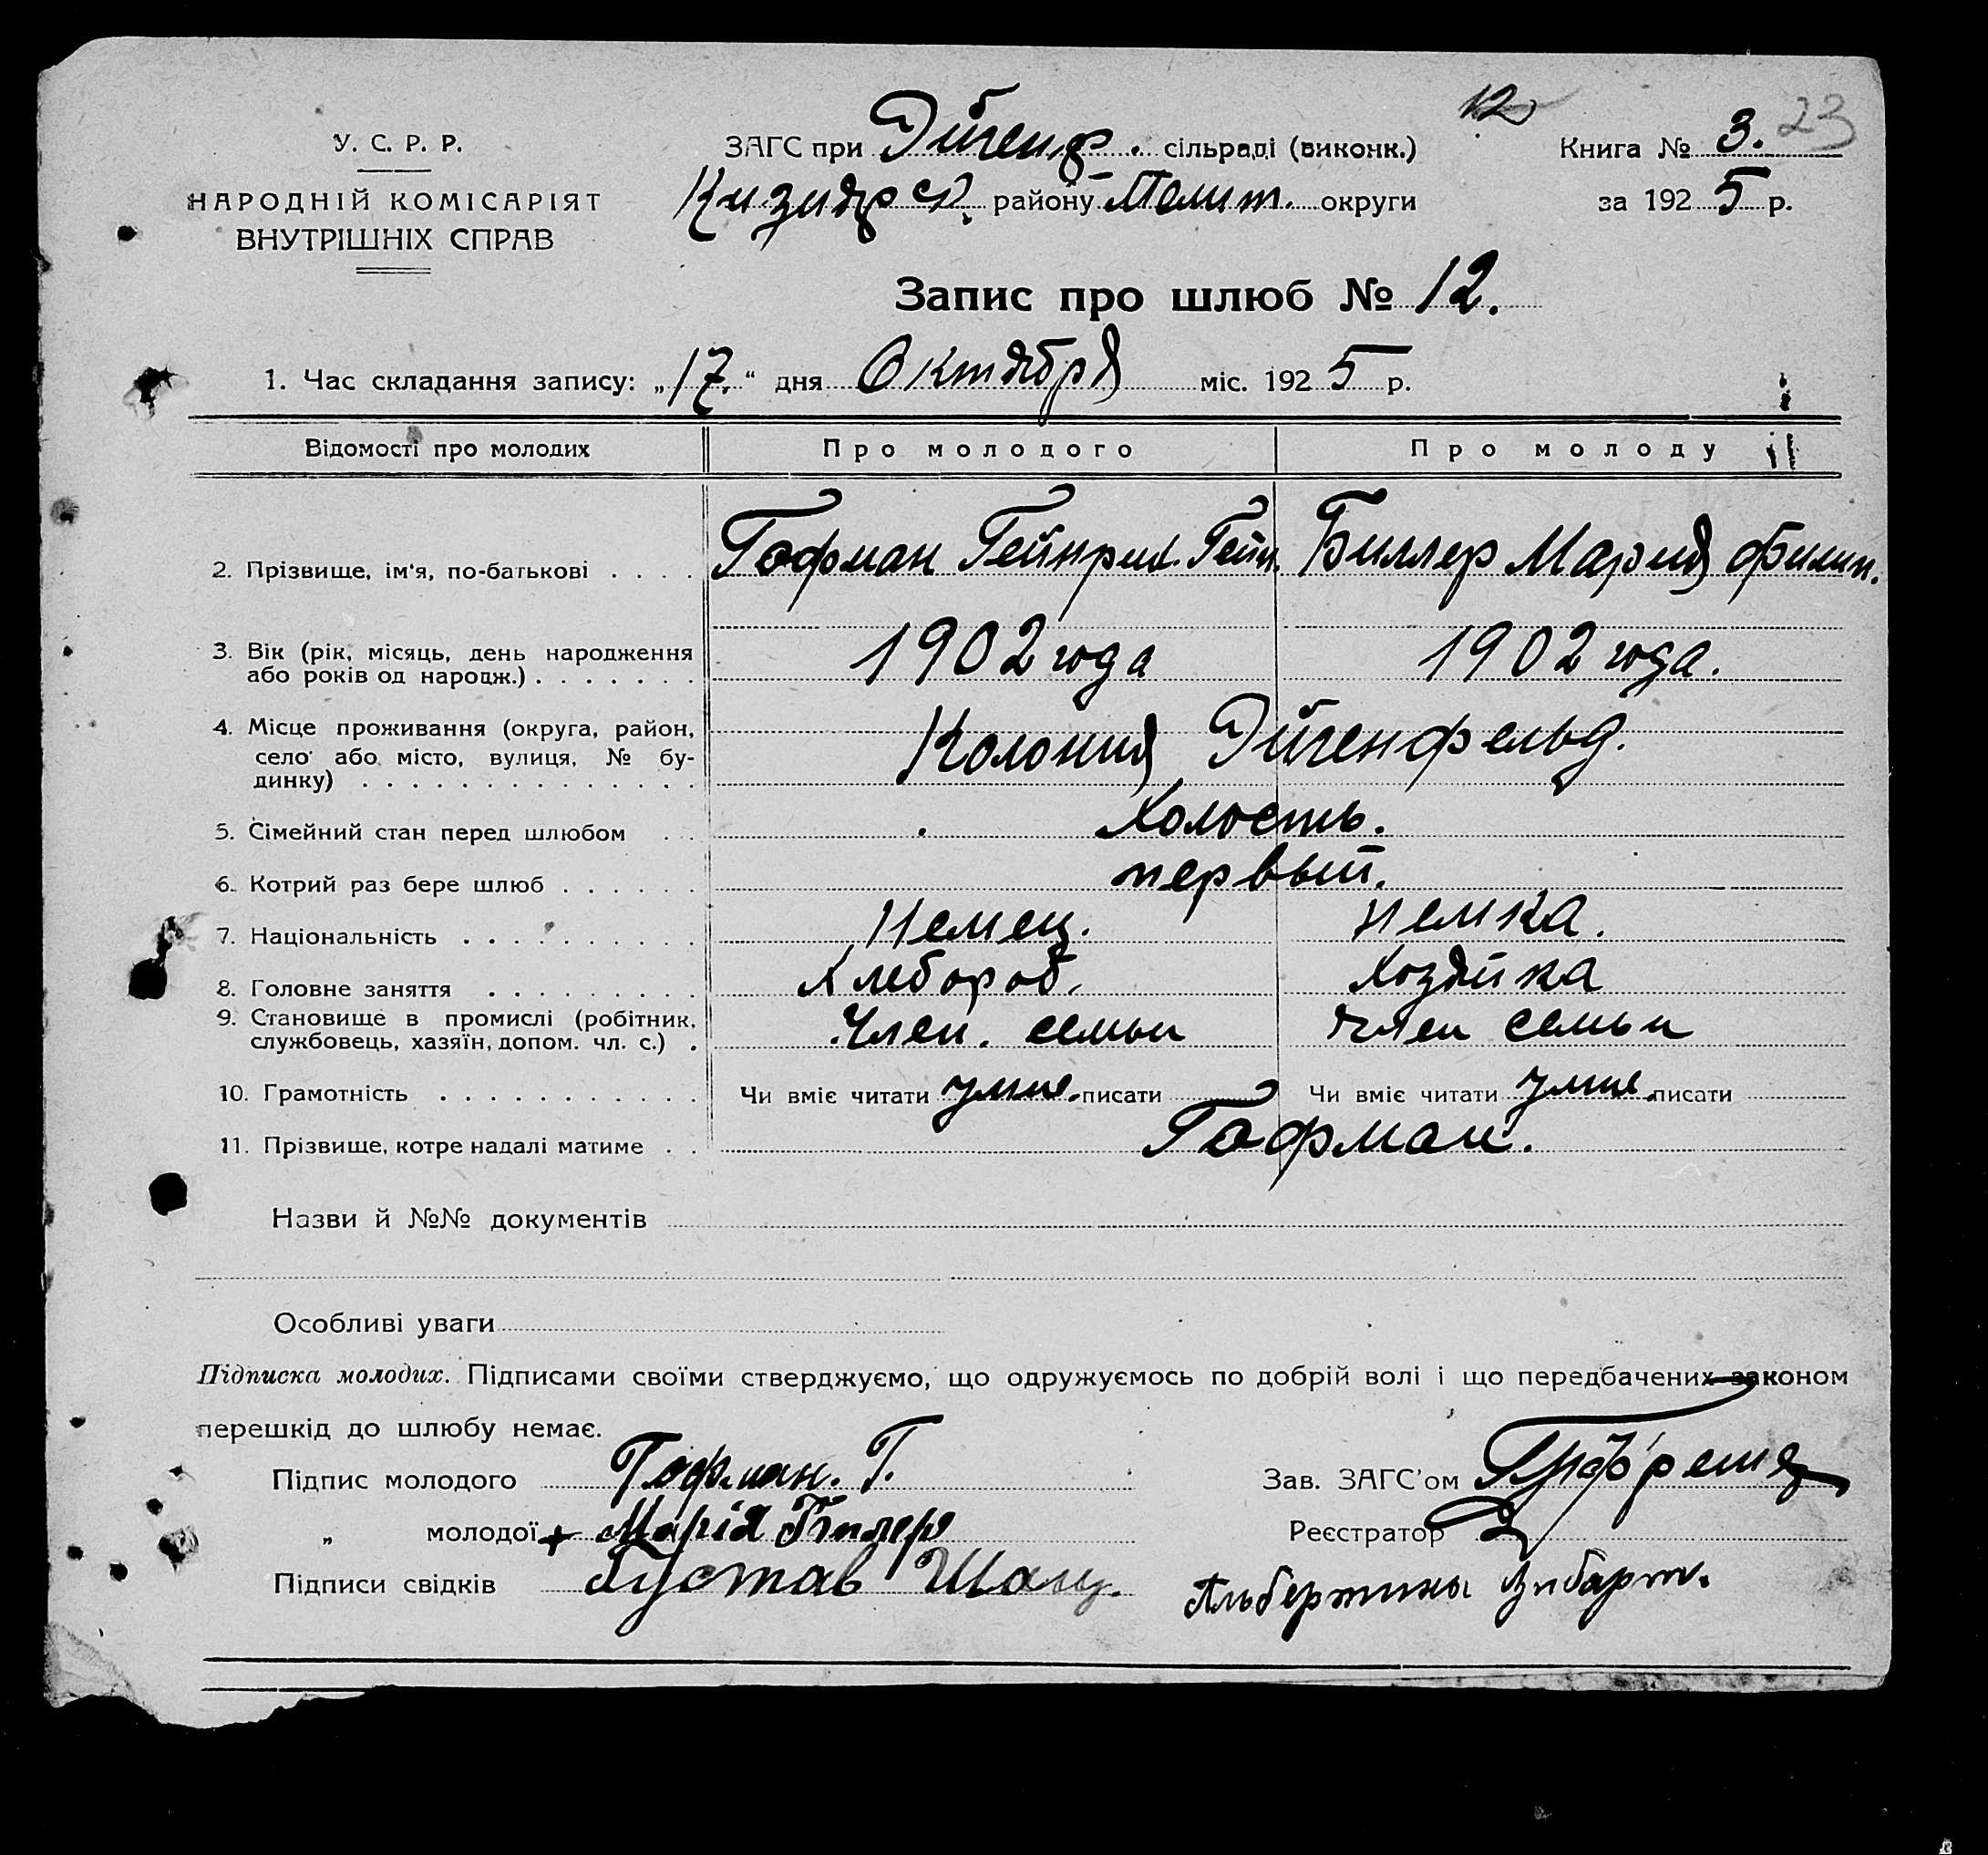 12
У. С. Р. Р.
НАРОДНІЙ КОМІСАРІЯТ
ВНУТРІШНІХ СПРАВ
ЗАГС при Эйгенф. сільраді (виконк.)
района Мелит. округи
Книга № 3. 23
за 1925 р.
Запис про шлюб № 12.
1. Час складання запису: „17.“ дня Октября міс. 1925 р.
Відомості про молодих Про молодого Про молоду
2. Прізвище, ім'я, по-батькові . . . . Гофман Гейнрих. Гейн. Биллер Мария Филип.
3. Вік (рік, місяць, день народження
або років од народж.) . . . . . . . 1902 года 1902 года.
4. Місце проживання (округа, район,
село або місто, вулиця, № бу-
динку) . . . . . . . . . . . . . . Колония Эйгенфельд.
5. Сімейний стан перед шлюбом . . Холость.
6. Котрий раз бере шлюб . . . . . . первый.
7. Національність . . . . . . . . . . Немец. немка.
8. Головне заняття . . . . . . . . . Хлебороб. Хозяйка
9. Становище в промислі (робітник,
службовець, хазяїн, допом. чл. с.) . Член. семьи член семьи
10. Грамотність . . . . . . . . . . . Чи вміє читати умие. писати Чи вміє читати умие. писати
11. Прізвище, котре надалі матиме . . Гофман.
Назви й №№ документів
Особливі уваги
Підписка молодих. Підписами своїми стверджуємо, що одружуємось по добрій волі і що передбачених законом
перешкід до шлюбу немає.
Підпис молодого Гофман. Г.
Зав. ЗАГС'ом
„ молодої + Марія Билер
Реєстратор
Підписи свідків Густав Шац.
Альбертина Зибарт.